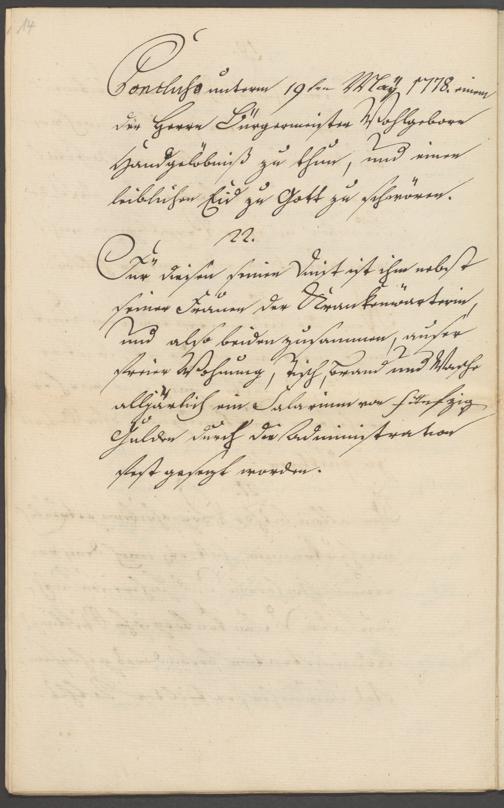 14
Conclusso unterm 19ten Maÿ 1778. einem
der Herrn Bürgermeister Wohlgeborn
Handgelöbniß zu thun, und einen
leiblichen Eid zu Gott zu schwören.
22.
Für diesen seinen Dienst ist ihm nebst
seiner Frauen der Krankenwärterin,
und also beiden zusammen, auser
freier Wohnung, Tisch, Brand und Wasche
alljärlich ein Salarium von fünfzig
Gulden durch die Administration
fest gesezt worden.